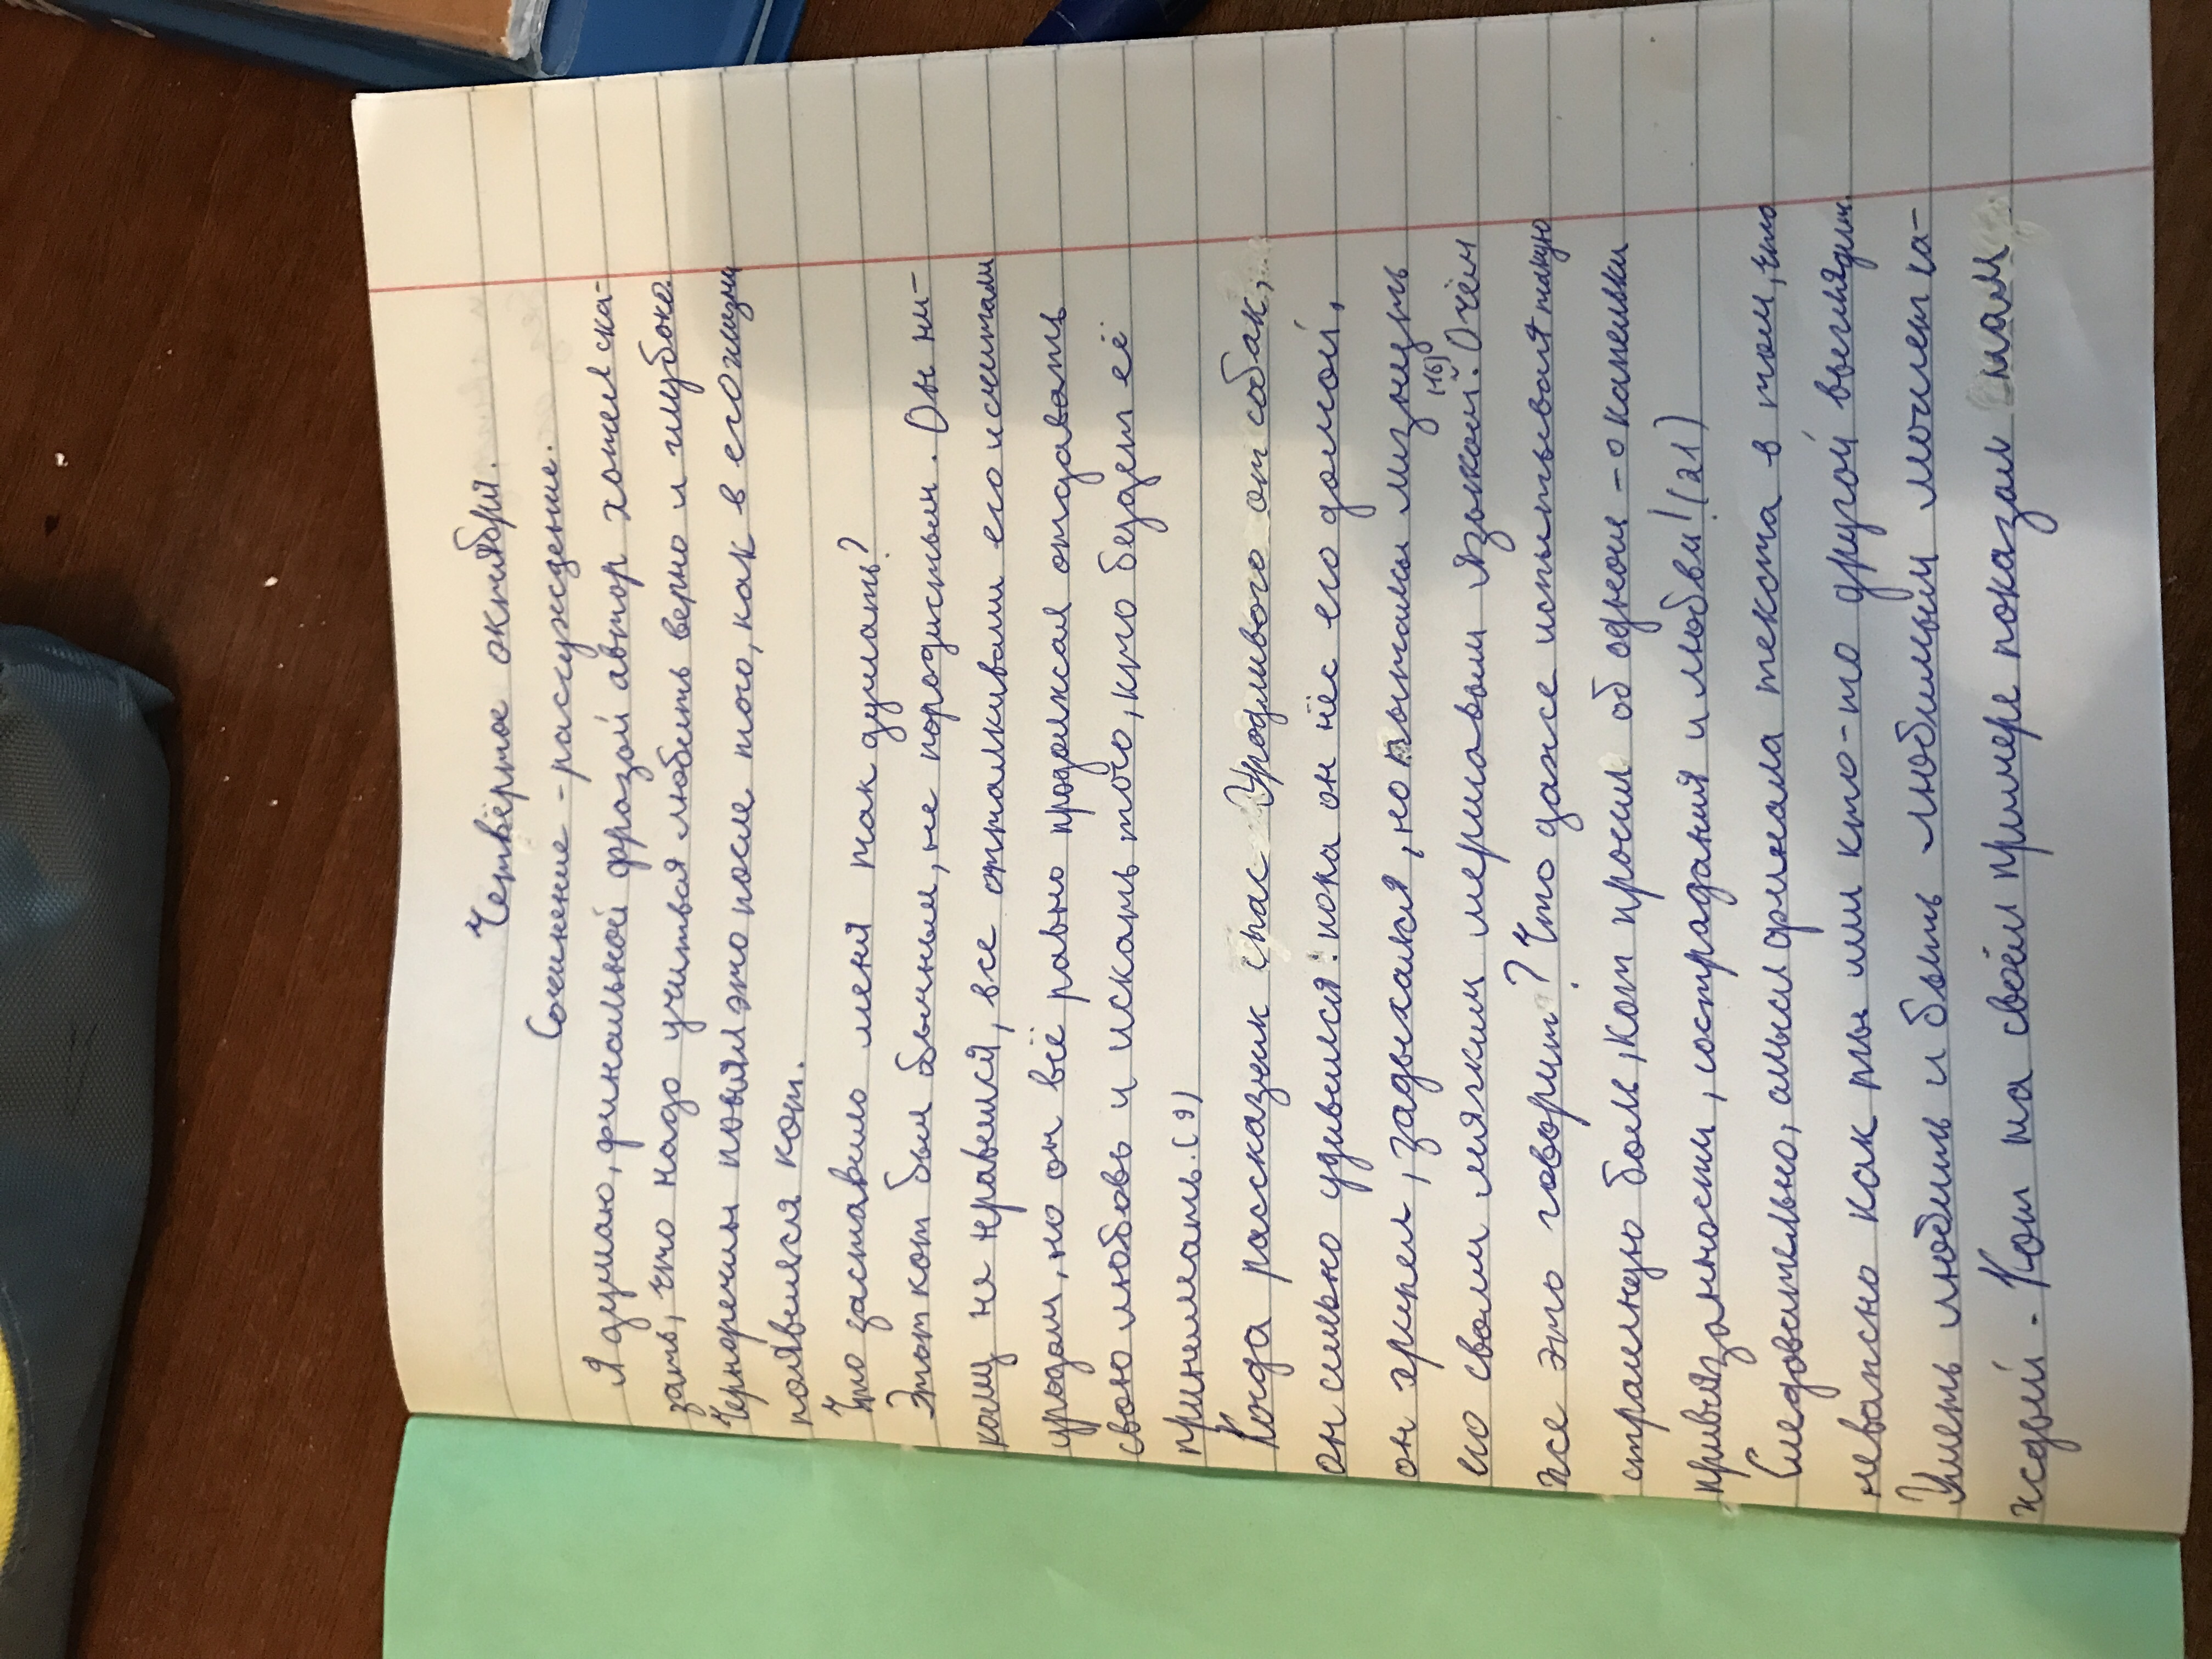 Четвёртое октября.
Сочинение - рассуждение.
Я думаю, финальной фразой автор хотел ска-
зать, что надо учиться любить верно и глубоко.
Черноречин понял это после того, как в его жизни
появился кот.
Что заставило меня так думать?
Этот кот был обычным, не породистым. Он ни-
кому не нравился, все отталкивали его и считали
уродом, но он всё равно продолжал отдавать
свою любовь и искать того, кто будет её
принимать. (9)
Когда рассказчик спас Уродливого от собак,
он сильно удивился: пока он нёс его домой,
он хрипел, задыхался, но пытался лизнуть
его своим мягким шершавым языком (16). О чём
же это говорит? Что даже испытывая такую
страшную боль, кот просил об одном - о капельки
привязанности, сострадания и любви! (21)
Следовательно, смысл финала текста в том, что
неважно как ты или кто-то другой выглядит.
Уметь любить и быть любимым может ка-
ждый. Кот на своём примере показал нам